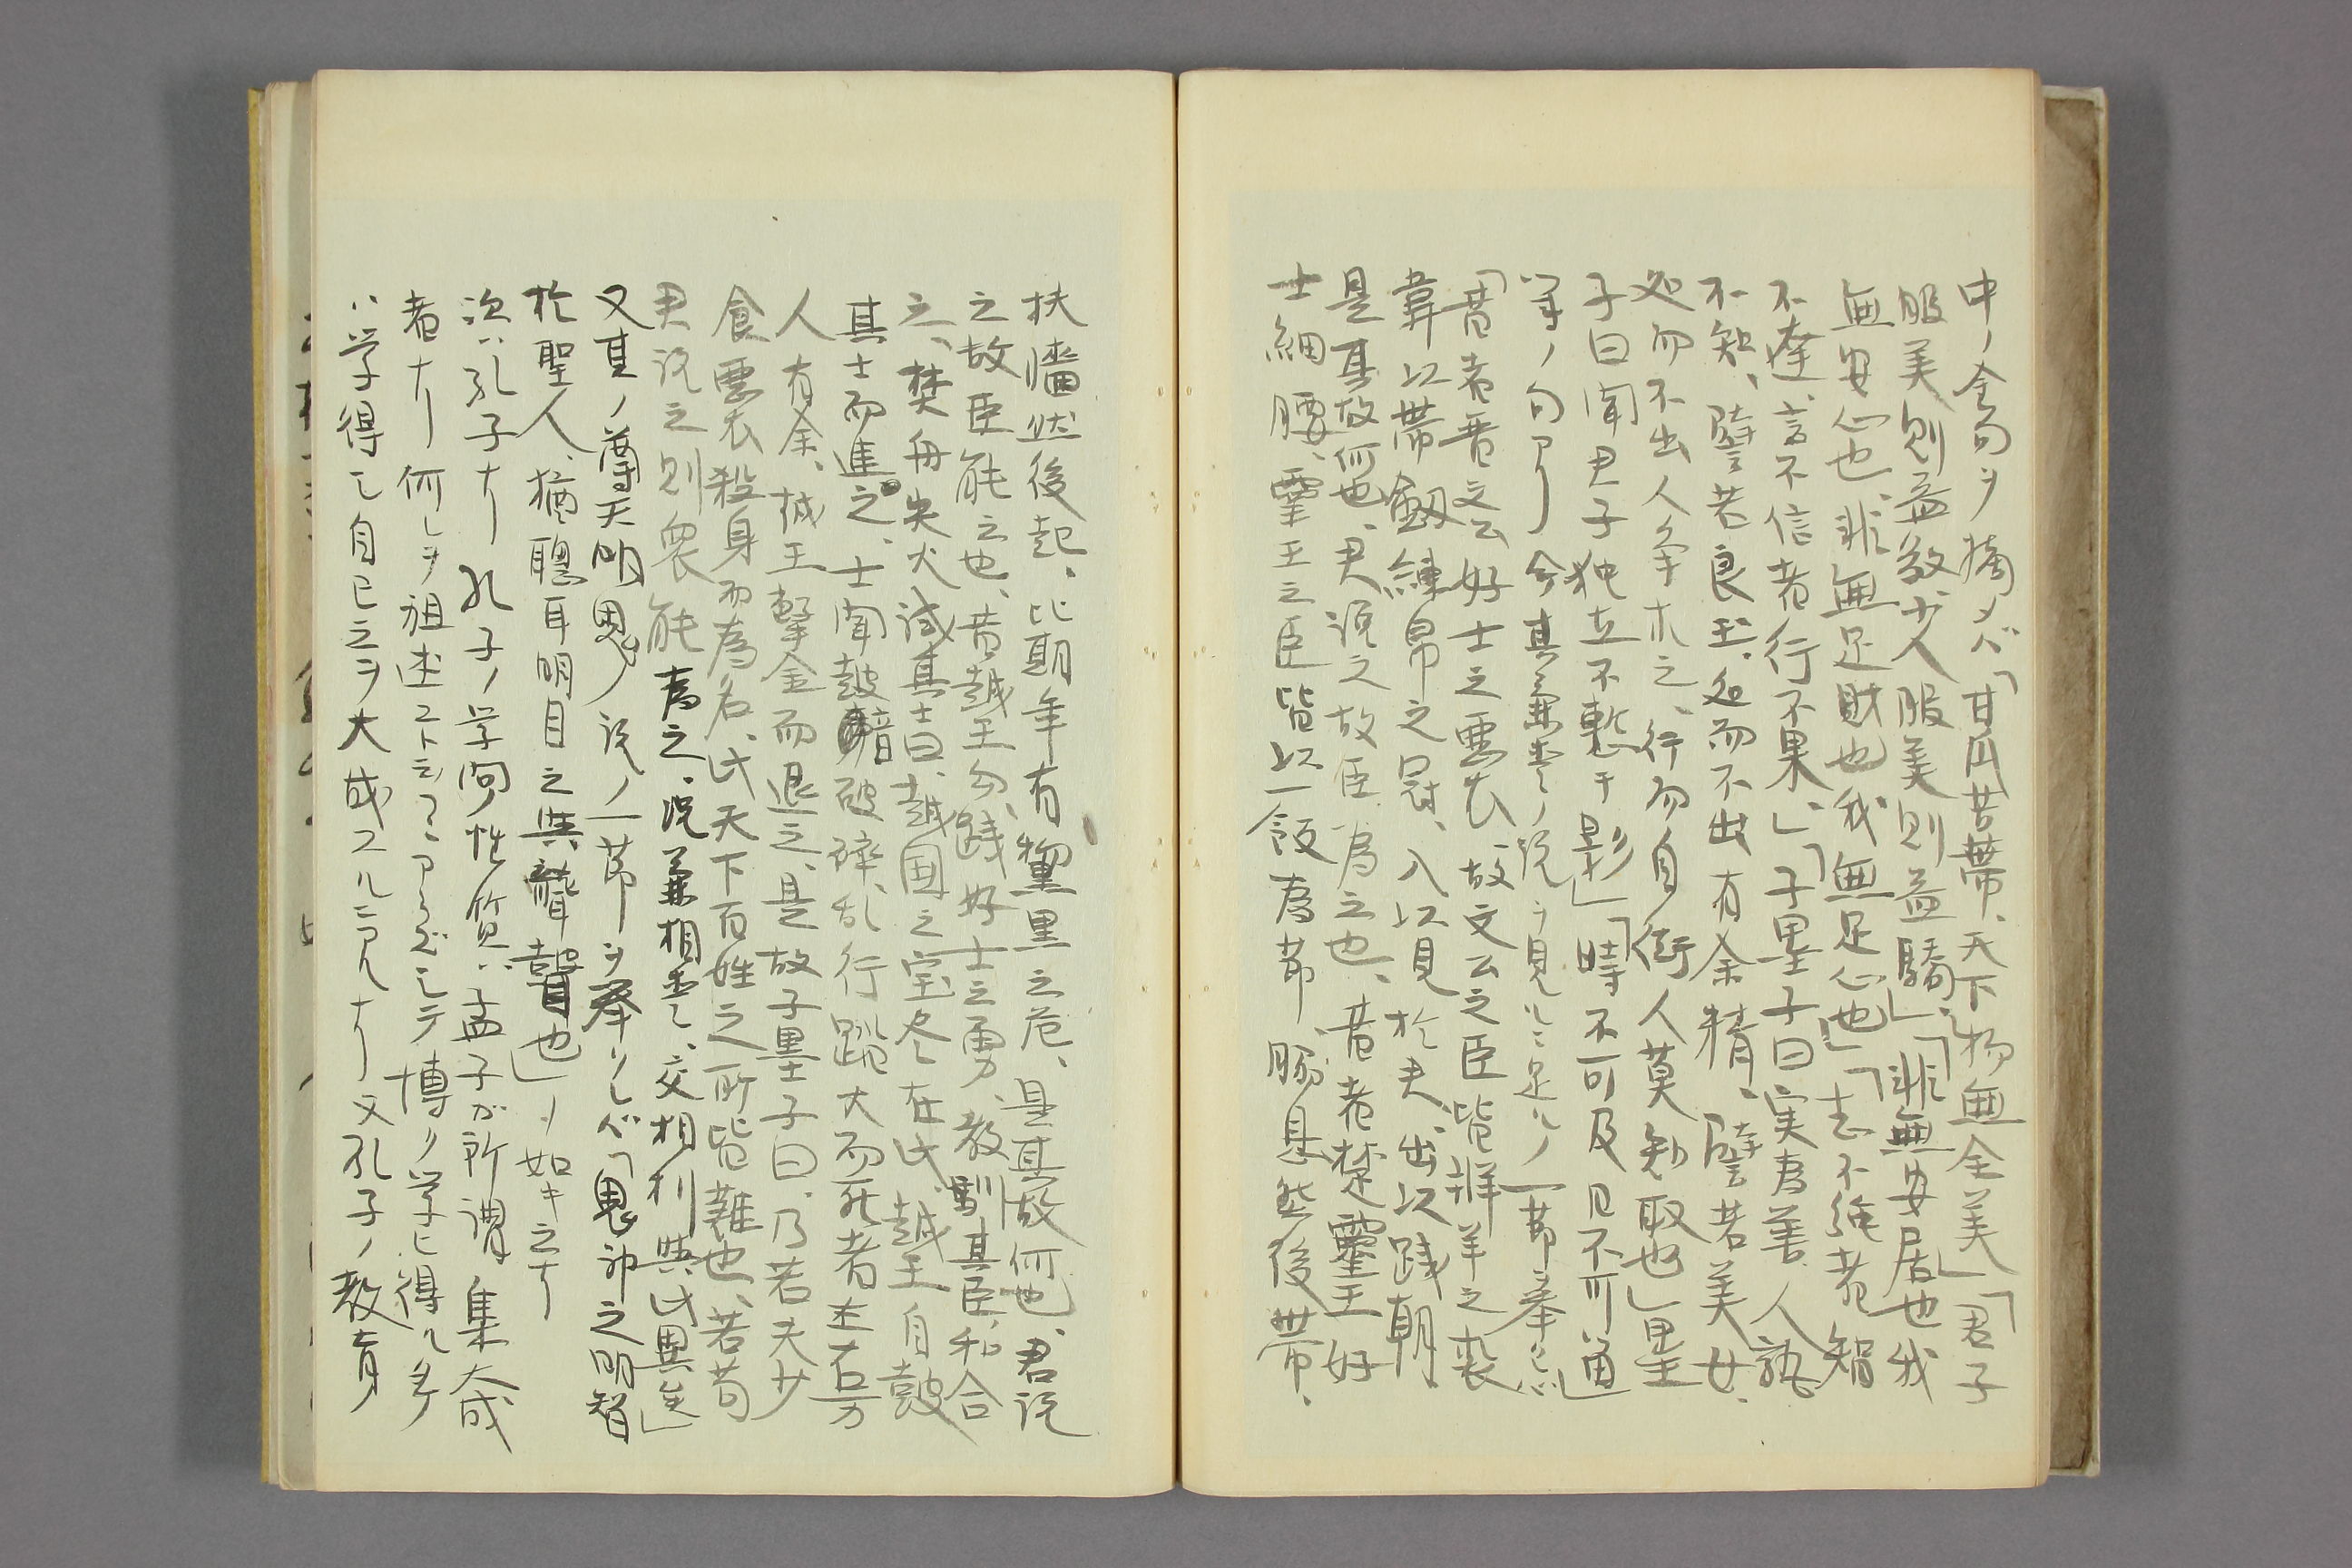 中ノ金句ヲ摘メバ「甘瓜苦蔕、天下物無全美」「君子
服美則益敬、少人服美則益驕」、「非無安居也我
無安心也、非無足財也我無足心也」「志不強者智
不達、言不信者行不果」、「子墨子曰実為善人孰
不知、譬若良玉、処而不出有余精、譬若美女、
処而不出人争求之、行而自衒人莫知取也」墨
子曰聞君子独立不慙于影」「時不可及日不可通」
等ノ句アリ今其兼愛ノ説ヲ見ルニ足ルノ一節挙レバ
「昔者晋文公好士之悪衣、故文公之臣皆牂羊之裘
韋以帯劔練帛之冠、入以見於夫、出以践朝、
是其故何也、君説之故臣為之也、昔者楚霊王好
士細腰、霊王之臣皆以一飯為節、脇息然後帯、
扶牆然後起、比期年有黧黒之危、是其故何也、君説
之故臣能之也、昔越王勾践好士之勇、教馴其臣、和合
之、焚舟失火試其士曰、越国之宝尽在此、越王自鼓
其士而進之、士聞鼓音破碎乱行蹈火而死者左右万
人有余、越王撃金而退之、是故子墨子曰、乃若夫少
食悪衣殺身而為名、此天下百姓之所皆難也、若苟
君説之則衆能為之、況兼相愛、交相利与此異矣」
又其ノ尊天明鬼ノ説ノ一節ヲ挙クレバ「鬼神之明智
於聖人、猶聰耳明目之與聾瞽也」ノ如キ之ナリ
次ハ孔子ナリ孔子ノ学問性質ハ孟子ガ所謂集大成
者ナリ何レヲ祖述スト云フコアラズシテ博ク学ビ得ル多
ハ学得シ自己之ヲ大成スルニアルナリ又孔子ノ教育